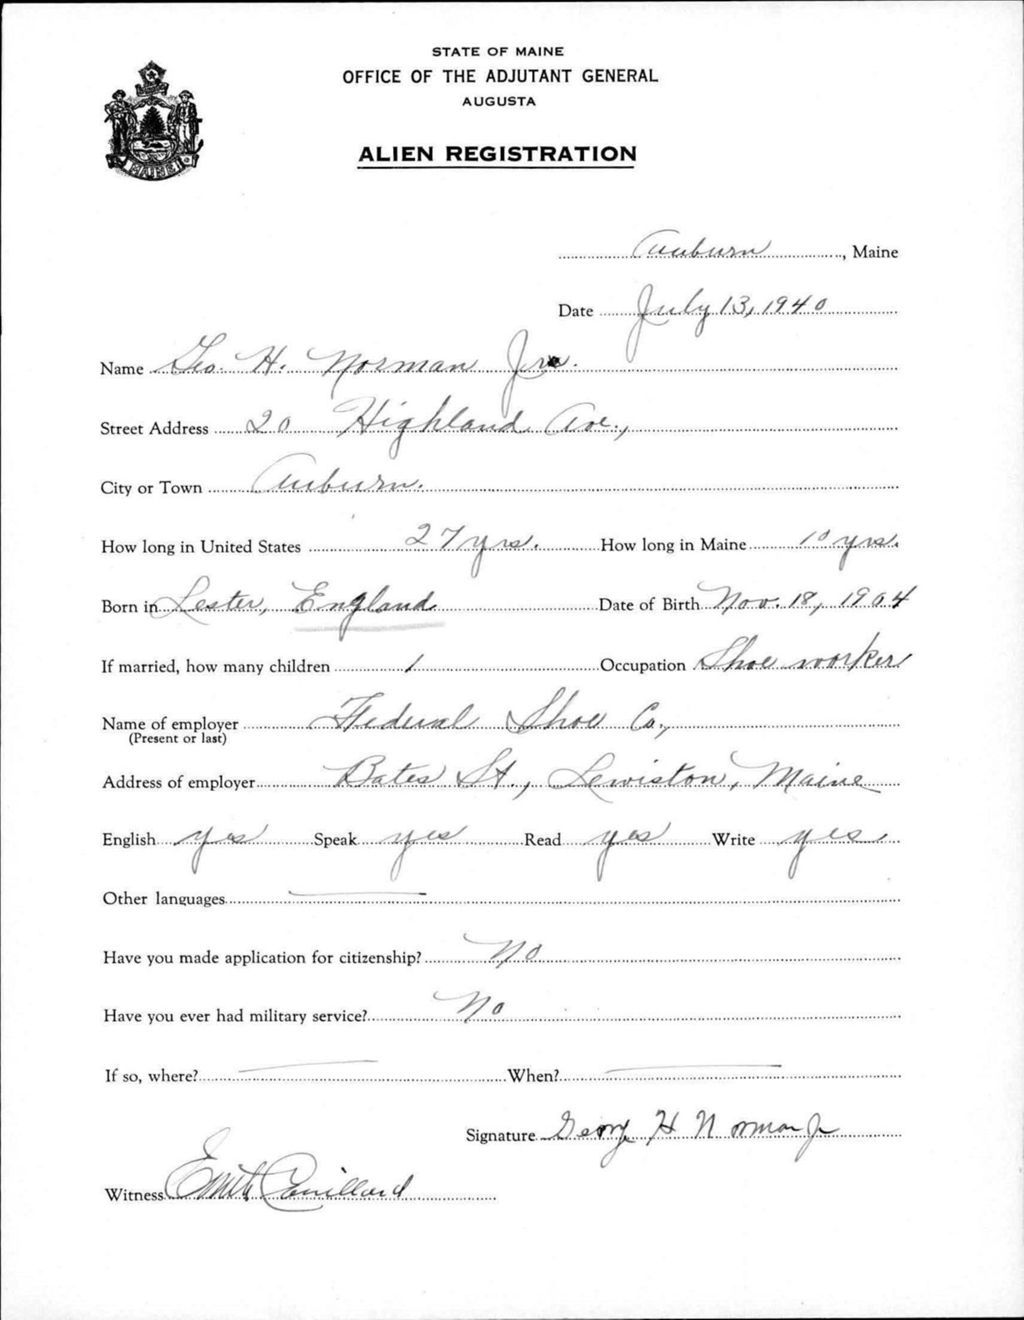 STATE OF MAINE
OFFICE OF THE ADJUTANT GENERAL
AUGUSTA
ALIEN REGISTRATION
MAINE
Auburn, Maine
Date July 13, 1940
Name Geo. H. Norman Jr.
Street Address 20 Highland Ave.,
City or Town Auburn.
How long in United States 27 yrs. How long in Maine 10 yrs.
Born in Lester, England Date of Birth Nov. 18, 1904
If married, how many children 1 Occupation Shoe worker
Name of employer Federal Shoe Co.,
(Present or last)
Address of employer Bates St., Lewiston, Maine
English yes Speak yes Read yes Write yes.
Other languages
Have you made application for citizenship? No
Have you ever had military service? No
If so, where? When?
Signature George H Norman Jr
Witness